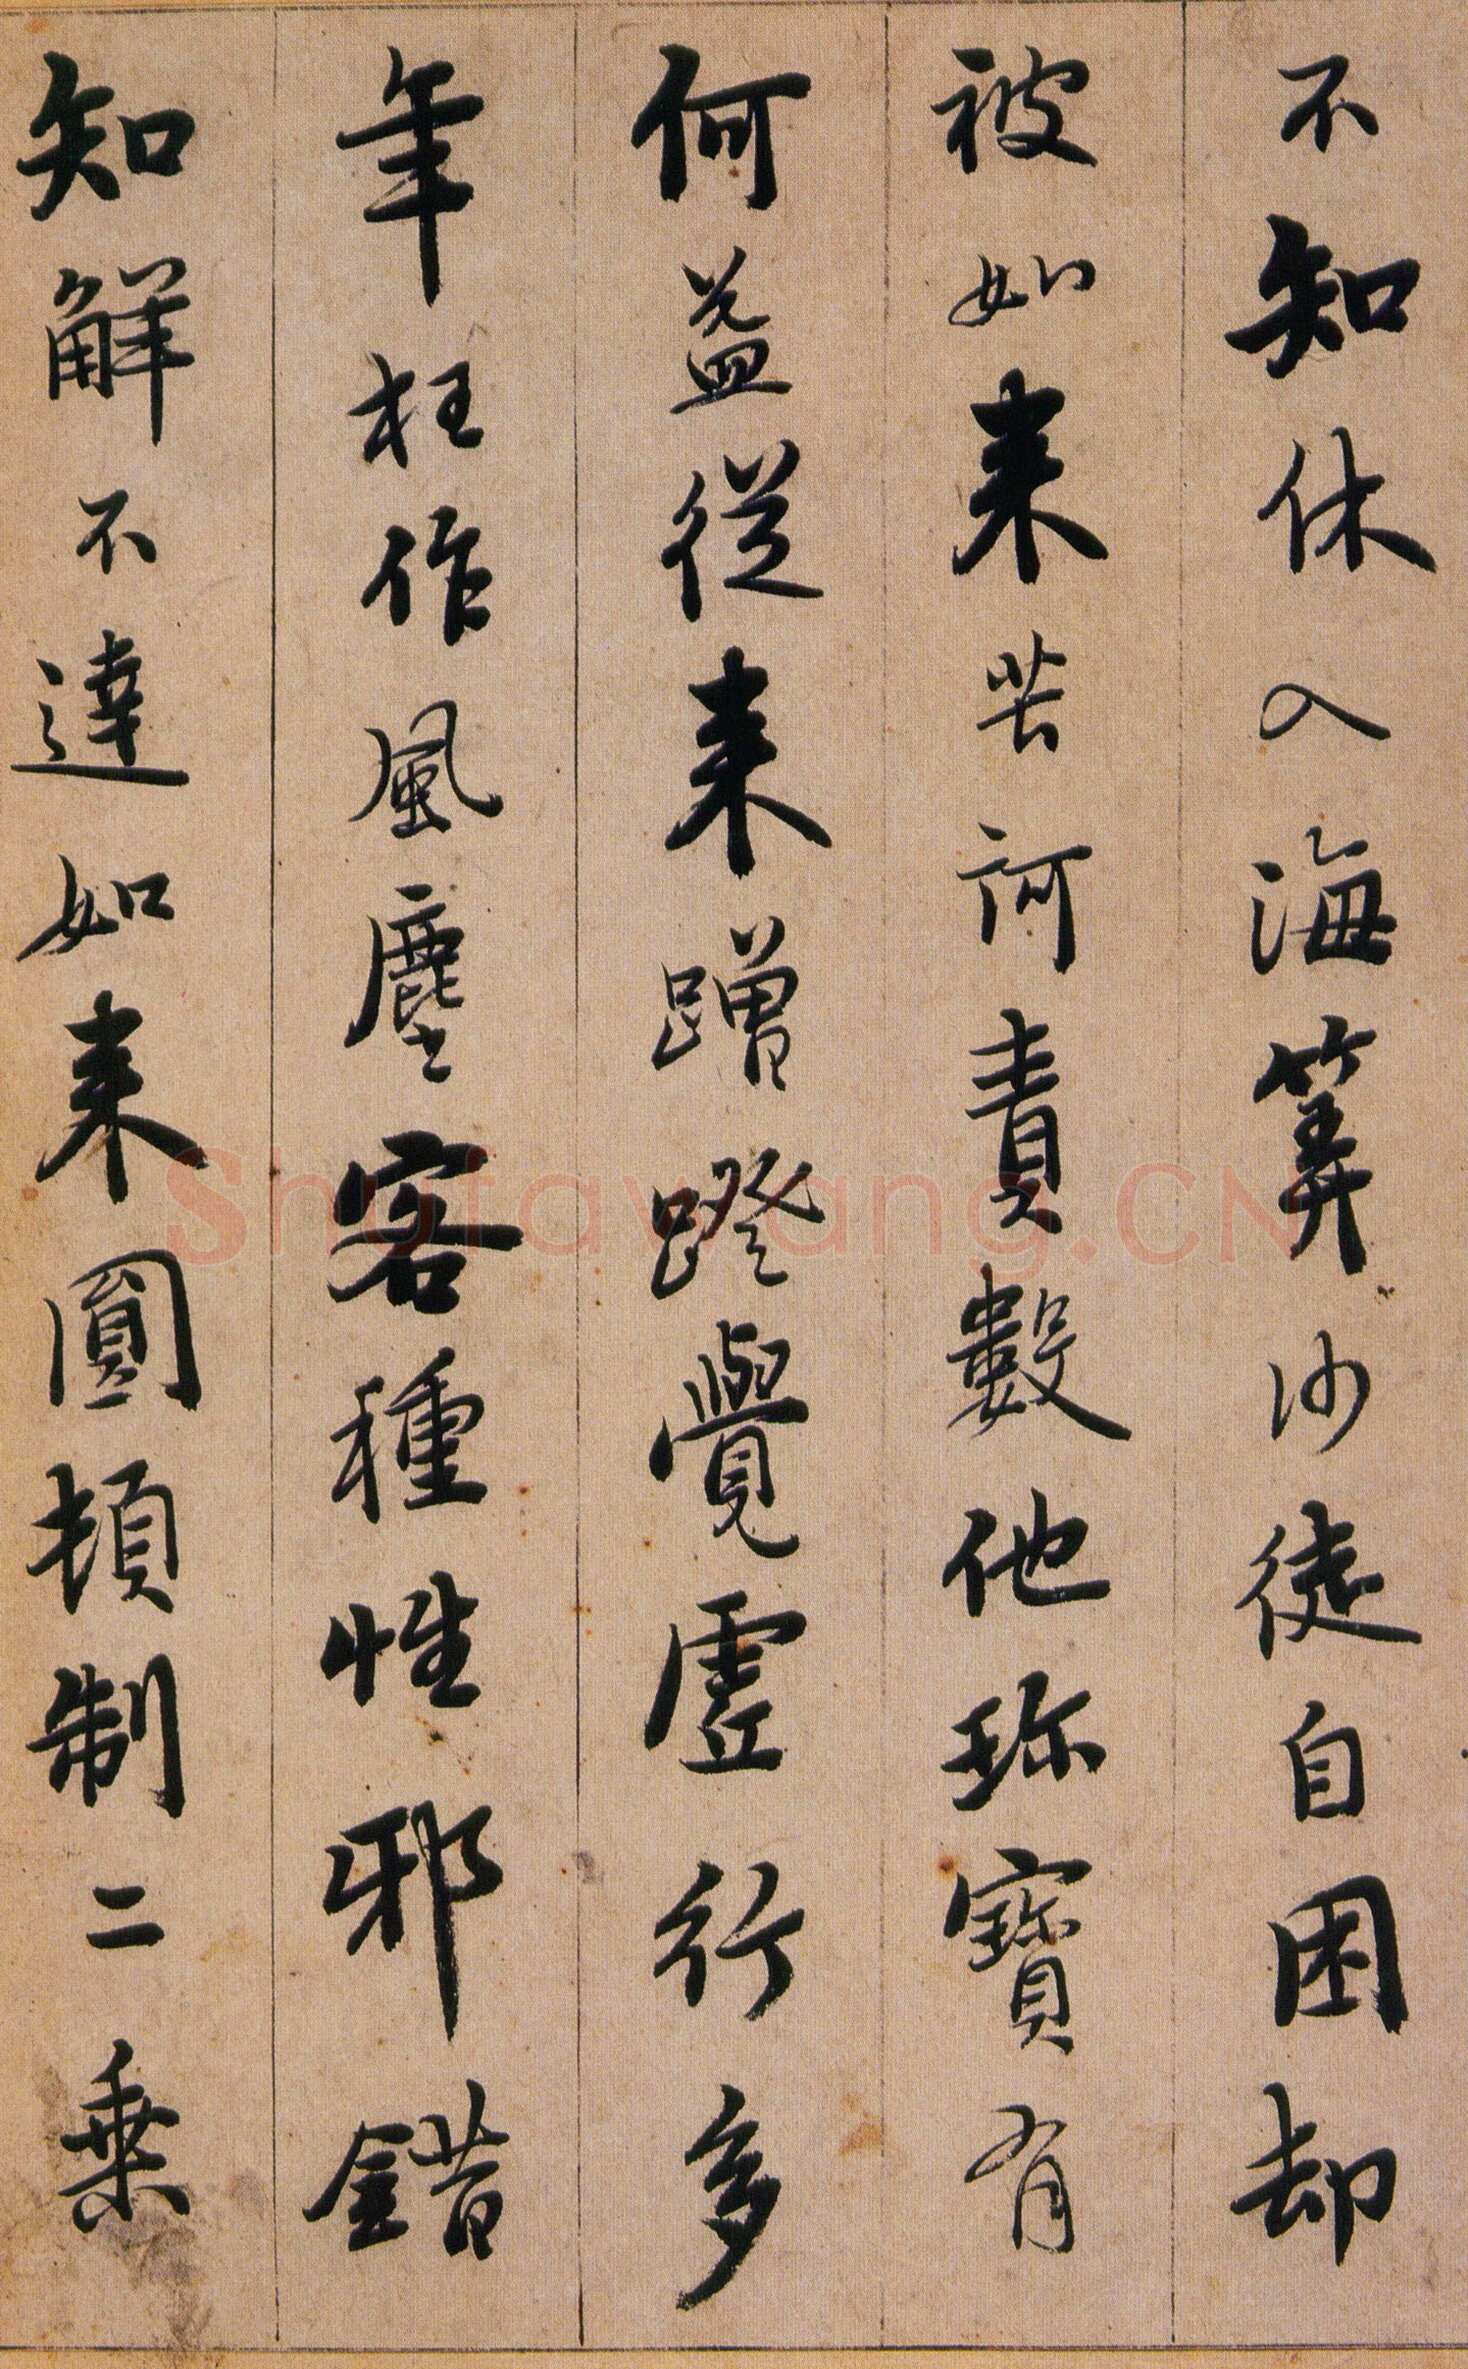 不知休入海筭沙徒自困却
被如来苦訶責數他珎寶有
何益從来蹭蹬覺虛行多
年枉作風塵客種性邪錯
知解不達如来圓頓制二乗
Shufawang.CN